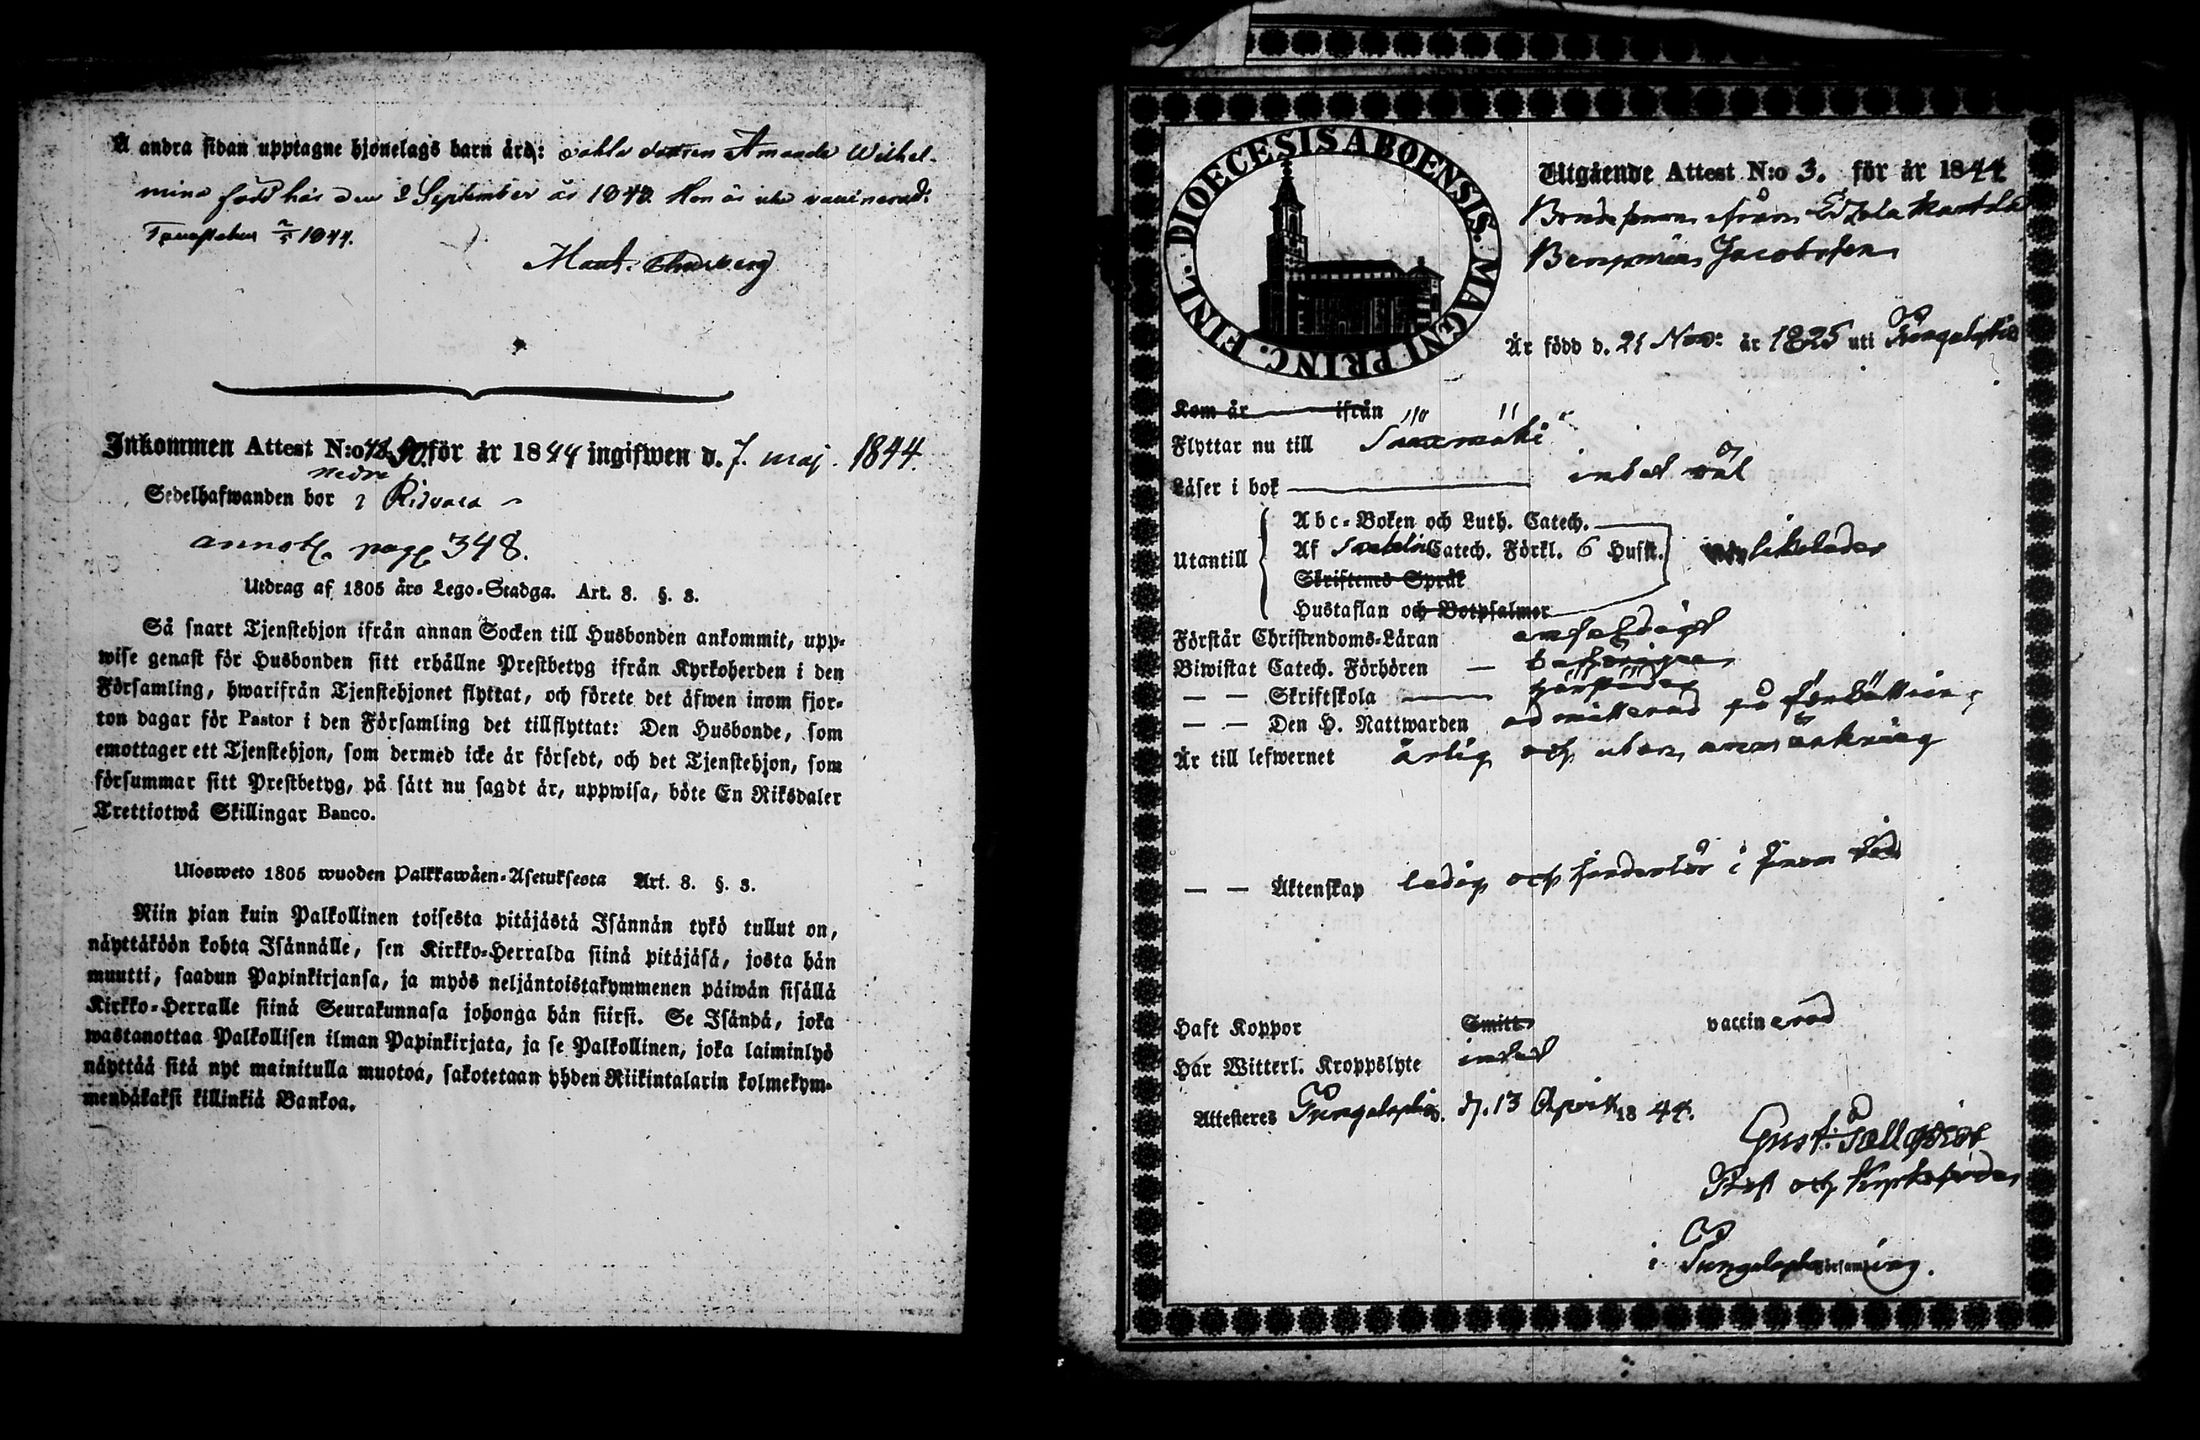 Å andra sidan upptagne hjonelags barn äro: äkta dottren Amanda Wilhel-
mina född här den 2 September år 1843. Hon är icke vaccinerad.
Tavastehus 2/5 1844.
Inkommen Attest N:o för år 1844 ingifwen d. 7. maj. 1844.
nedre
Sedelhafwanden bor i Ridvala
annot. pag. 348.
Utdrag af 1805 års Lego-Stadga. Art. 8. §. 3.
Så snart Tjenstehjon ifrån annan Socken till Husbonden ankommit, upp-
wise genast för Husbonden sitt erhållne Prestbetyg ifrån Kyrkoherden i den
Församling, hwarifrån Tjenstehjonet flyttat, och förete det äfwen inom fjor-
ton dagar för Pastor i den Församling det tillflyttat: Den Husbonde, som
emottager ett Tjenstehjon, som dermed icke är försedt, och det Tjenstehjon, som
försummar sitt Prestbetyg, på sätt nu sagdt är, uppwisa, böte En Riksdaler
Trettiotwå Skillingar Banco.
Ulosweto 1805 wuoden Palkkawäen-Asetuksesta Art. 8. §. 3.
Niin pian kuin Palkollinen toisesta pitäjästä Isännän tykö tullut on,
näyttäköön kohta Isännälle, sen Kirkko-Herralda siinä pitäjäsä, josta hän
muutti, saadun Papinkirjansa, ja myös neljäntoistakymmenen päiwän sisällä
Kirkko-Herralle siinä Seurakunnasa johonga hän siirsi. Se Isändä, joka
wastanottaa Palkollisen ilman Papinkirjata, ja se Palkollinen, joka laiminlyö
näyttää sitä nyt mainitulla muotoa, sakotetaan yhden Riikintalarin kolmekym-
mendäkaksi killinkiä Bankoa.
DIOECESIS ABOENSIS. MAGNI PRINC. FINL.
Utgående Attest N:o 3. för år 1844
Bondesonen ifrån Mantila
Benjamin Jacobsson
Är född d. 21 Nov: år 1825 uti Tyngelsplä
Kom år ifrån
Flyttar nu till Sääxmäki
Läser i bok inbet väl
Utantill
Abc-Boken och Luth. Catech.
Af Svebilii Catech. Förkl. 6 Hufst. likaledes
Skriftenes Språk
Hustaflan och Botpsalmer
Förstår Christendoms-Läran enfaldigt
Biwistat Catech. Förhören behörigen
— — Skriftskola
— — Den H. Nattwarden admitterad på förbättring
Är till lefwernet ärlig och utan anmärkning
— — Äktenskap ledig och hinderlös i
Haft Koppor Smitt vaccinerad
Har Witterl. Kroppslyte intet
Attesteres d. 13 April 1844.
Prost och Kyrkoherde
i Församling.